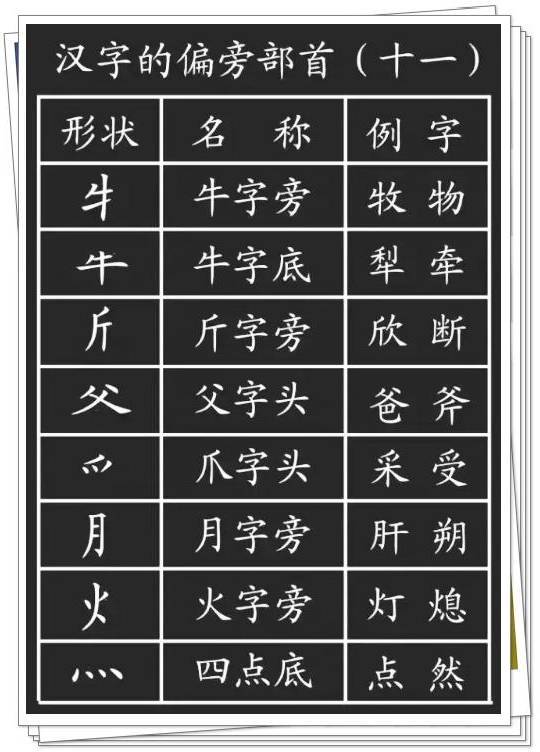 汉字的偏旁部首（十一）
形状 名 称 例 字
牜 牛字旁 牧 物
牛 牛字底 犁 牵
斤 斤字旁 欣 断
父 父字头 爸 斧
爫 爪字头 采 受
月 月字旁 肝 朔
火 火字旁 灯 熄
灬 四点底 点 然